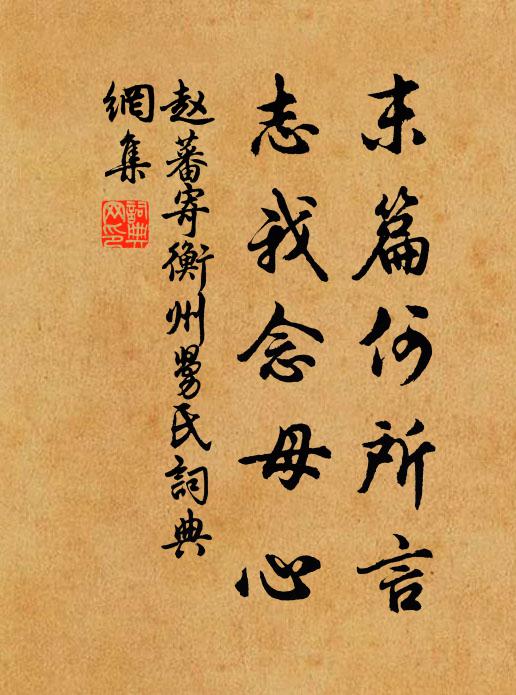 末篇何所言
志我念母心
赵蕃寄衡州舅氏詞典
網集
詞典
网印